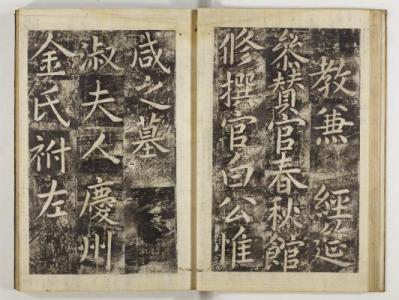 教兼 經筵
叅賛官春秋館
修撰官白公惟
咸之墓
淑夫人慶州
金氏祔左